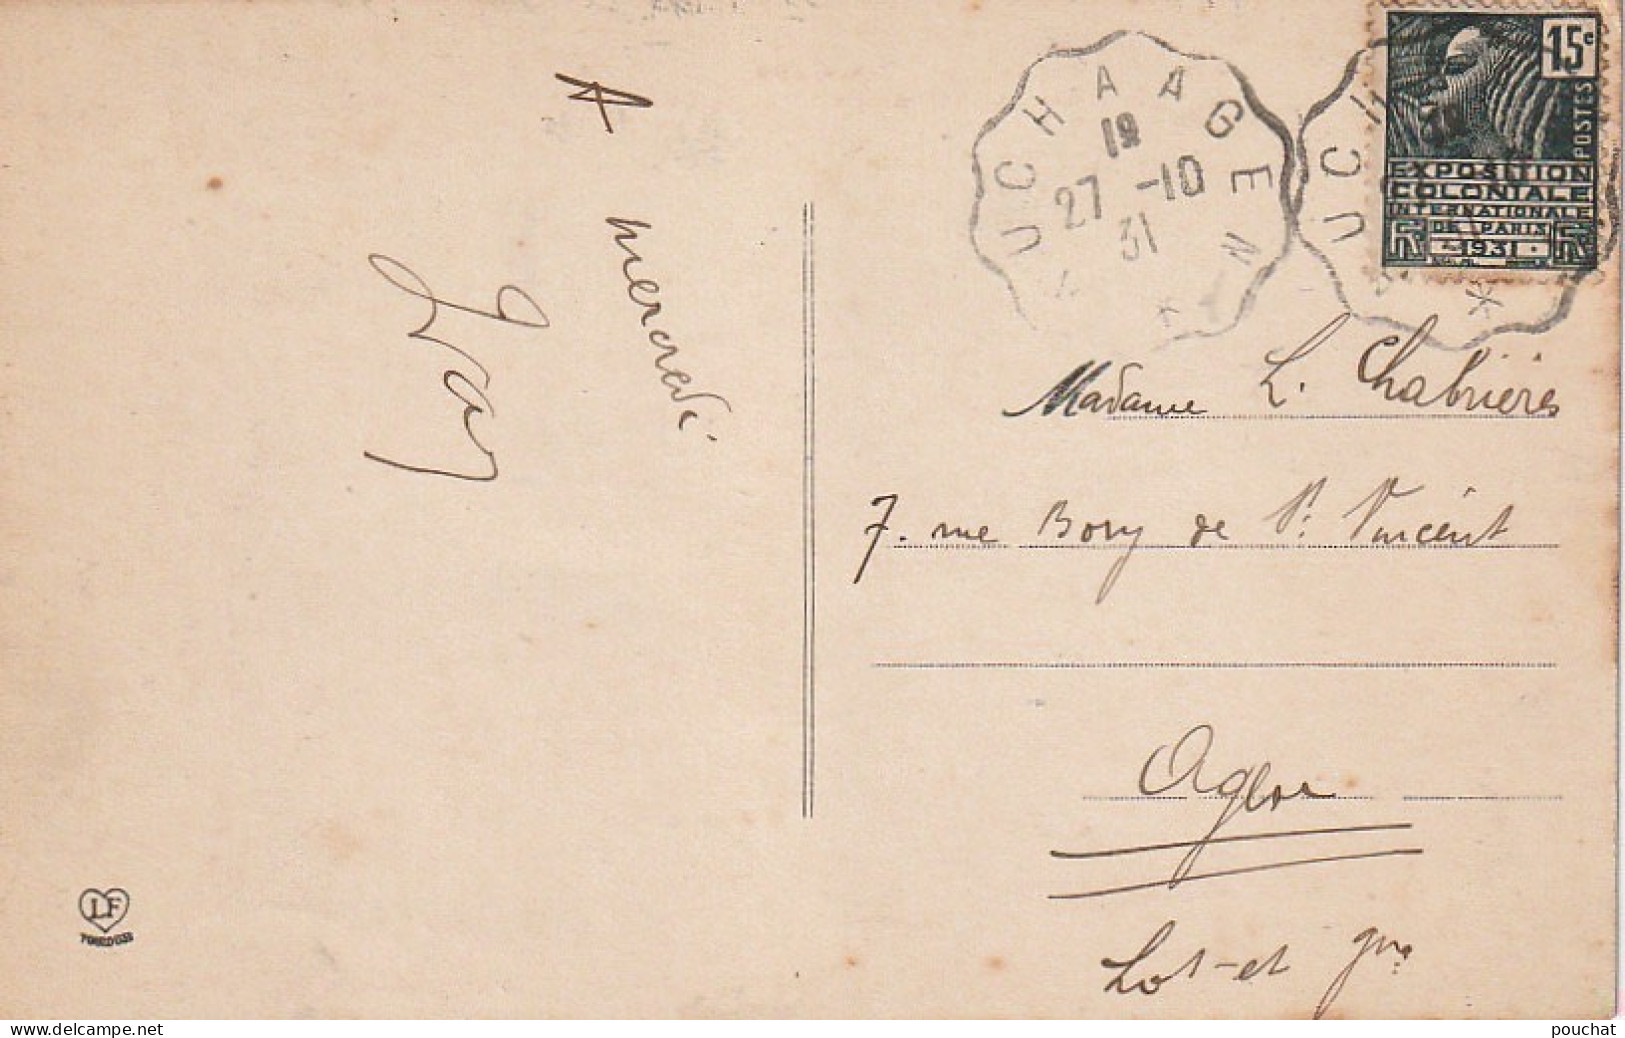 A mercredi
UCH A AGEN
19
27 -10
31
UC
15c
POSTES
EXPOSITION
COLONIALE
INTERNATIONALE
DE PARIS
1931
Madame L. Chabrières
7. rue Bory de St Vincent
Agen
Lot-et Gne
LF
https://www.delcampe.net
pouchat